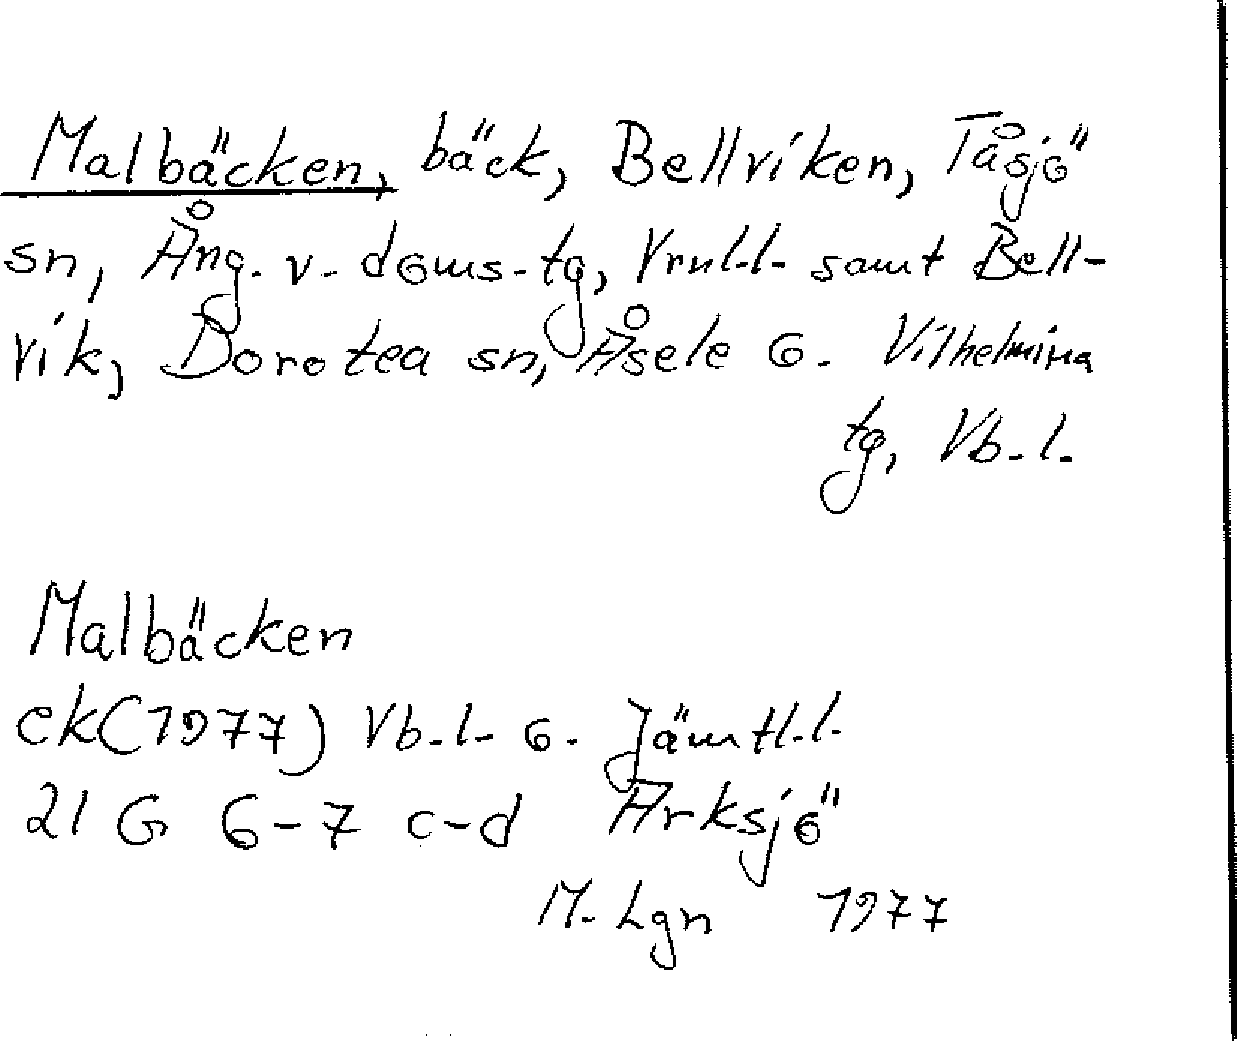 Malbäcken, bäck, Bellviken, Tåsjö
sn, Ång. v. doms.tg, Vrnl.l. samt Bell-
vik, Dorotea sn, Åsele o. Vilhelmina
tg, Vb.l.
Malbäcken
ek(1977) Vb.l. o. Jämtl.l.
21 G 6-7 c-d Arksjö
M. Lgn 1977